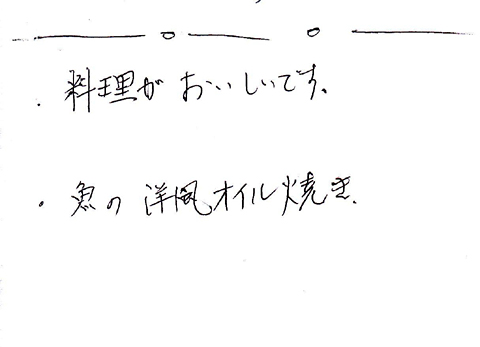 ・料理がおいしいです。
・魚の洋風オイル焼き.